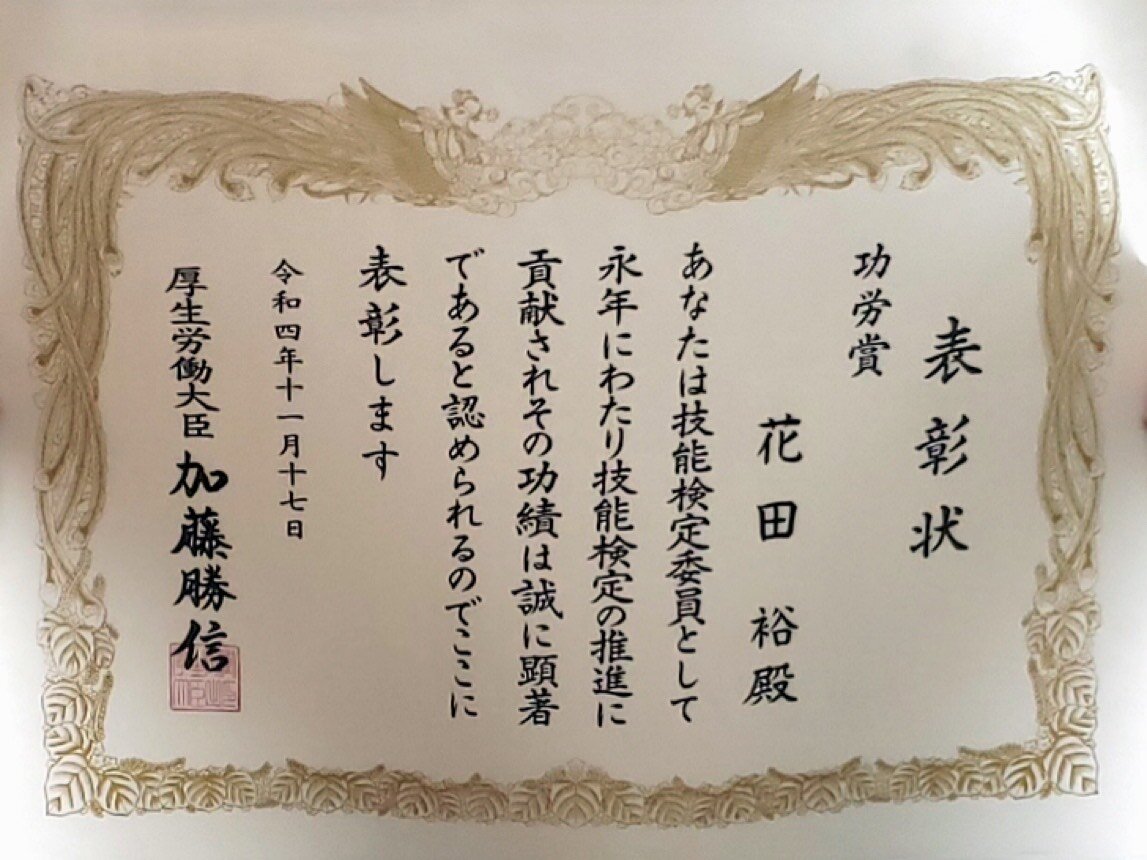 表彰状
功労賞
花田裕殿
あなたは技能検定委員として
永年にわたり技能検定の推進に
貢献されその功績は誠に顕著
であると認められるのでここに
表彰します
令和四年十一月十七日
厚生労働大臣 加藤勝信